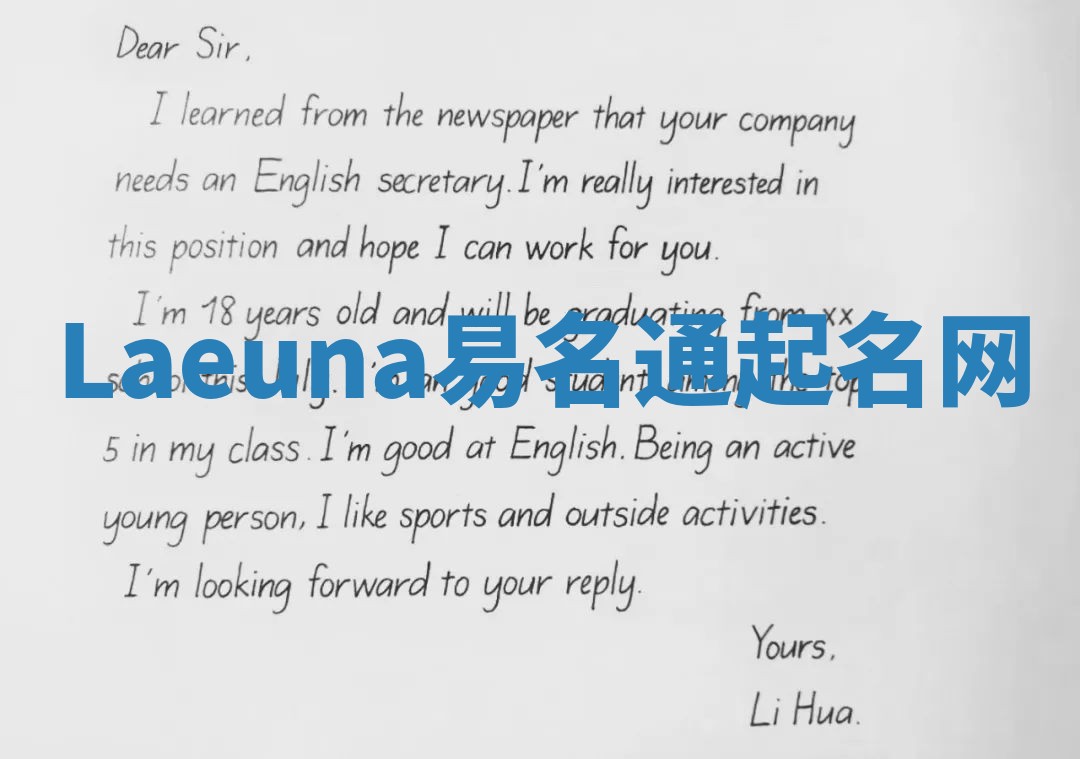 Dear Sir,
I learned from the newspaper that your company
needs an English secretary. I'm really interested in
this position and hope I can work for you.
I'm 18 years old and will be graduating from xx
Laeuna易名通起名网
school this July. I'm a good student among the top
5 in my class. I'm good at English. Being an active
young person, I like sports and outside activities.
I'm looking forward to your reply.
Yours,
Li Hua.